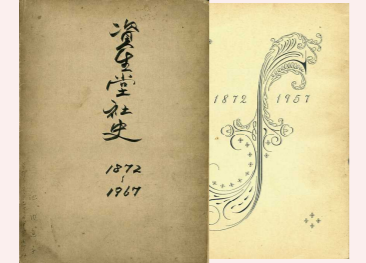 資生堂社史
1872
~
1957
1872 1957